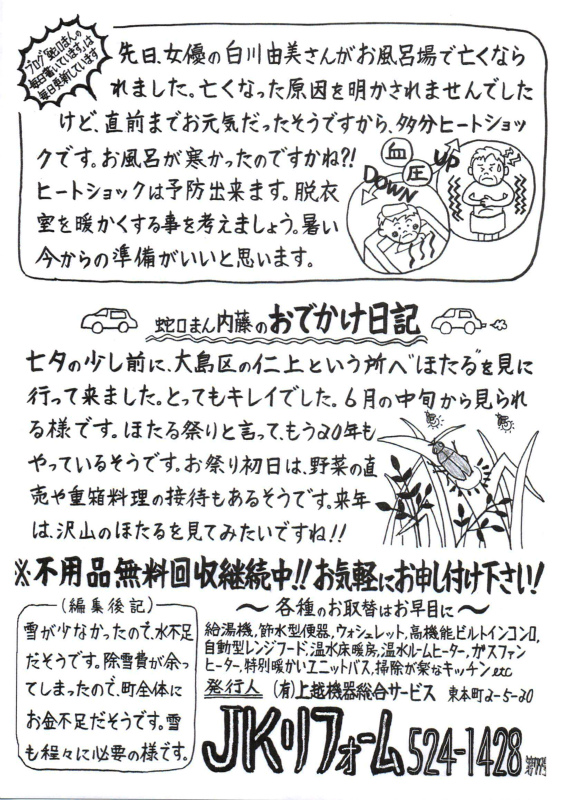 ブログ「蛇口まんの
毎日書いています」は
毎日更新しています
先日、女優の白川由美さんがお風呂場で亡くなら
れました。亡くなった原因を明かされませんでした
けど、直前までお元気だったそうですから、多分ヒートショッ
クです。お風呂が寒かったのですかね?!
ヒートショックは予防出来ます。脱衣
室を暖かくする事を考えましょう。暑い
今からの準備がいいと思います。
血圧
UP
DOWN
蛇口まん内藤のおでかけ日記
七夕の少し前に、大島区の仁上という所へ"ほたる"を見に
行って来ました。とってもキレイでした。6月の中旬から見られ
る様です。ほたる祭りと言って、もう20年も
やっているそうです。お祭り初日は、野菜の直
売や重箱料理の接待もあるそうです。来年
は、沢山のほたるを見てみたいですね!!
※不用品無料回収継続中!!お気軽にお申し付け下さい!
(編集後記)
雪が少なかったので、水不足
だそうです。除雪費が余っ
てしまったので、町全体に
お金不足だそうです。雪
も程々に必要の様です。
～各種のお取替はお早目に～
給湯機,節水型便器,ウォシュレット,高機能ビルトインコンロ,
自動型レンジフード,温水床暖房,温水ルームヒーター,ガスファン
ヒーター,特別暖かいユニットバス,掃除が楽なキッチンetc
発行人 (有)上越機器総合サービス 東本町2-5-20
JKリフォーム 524-1428